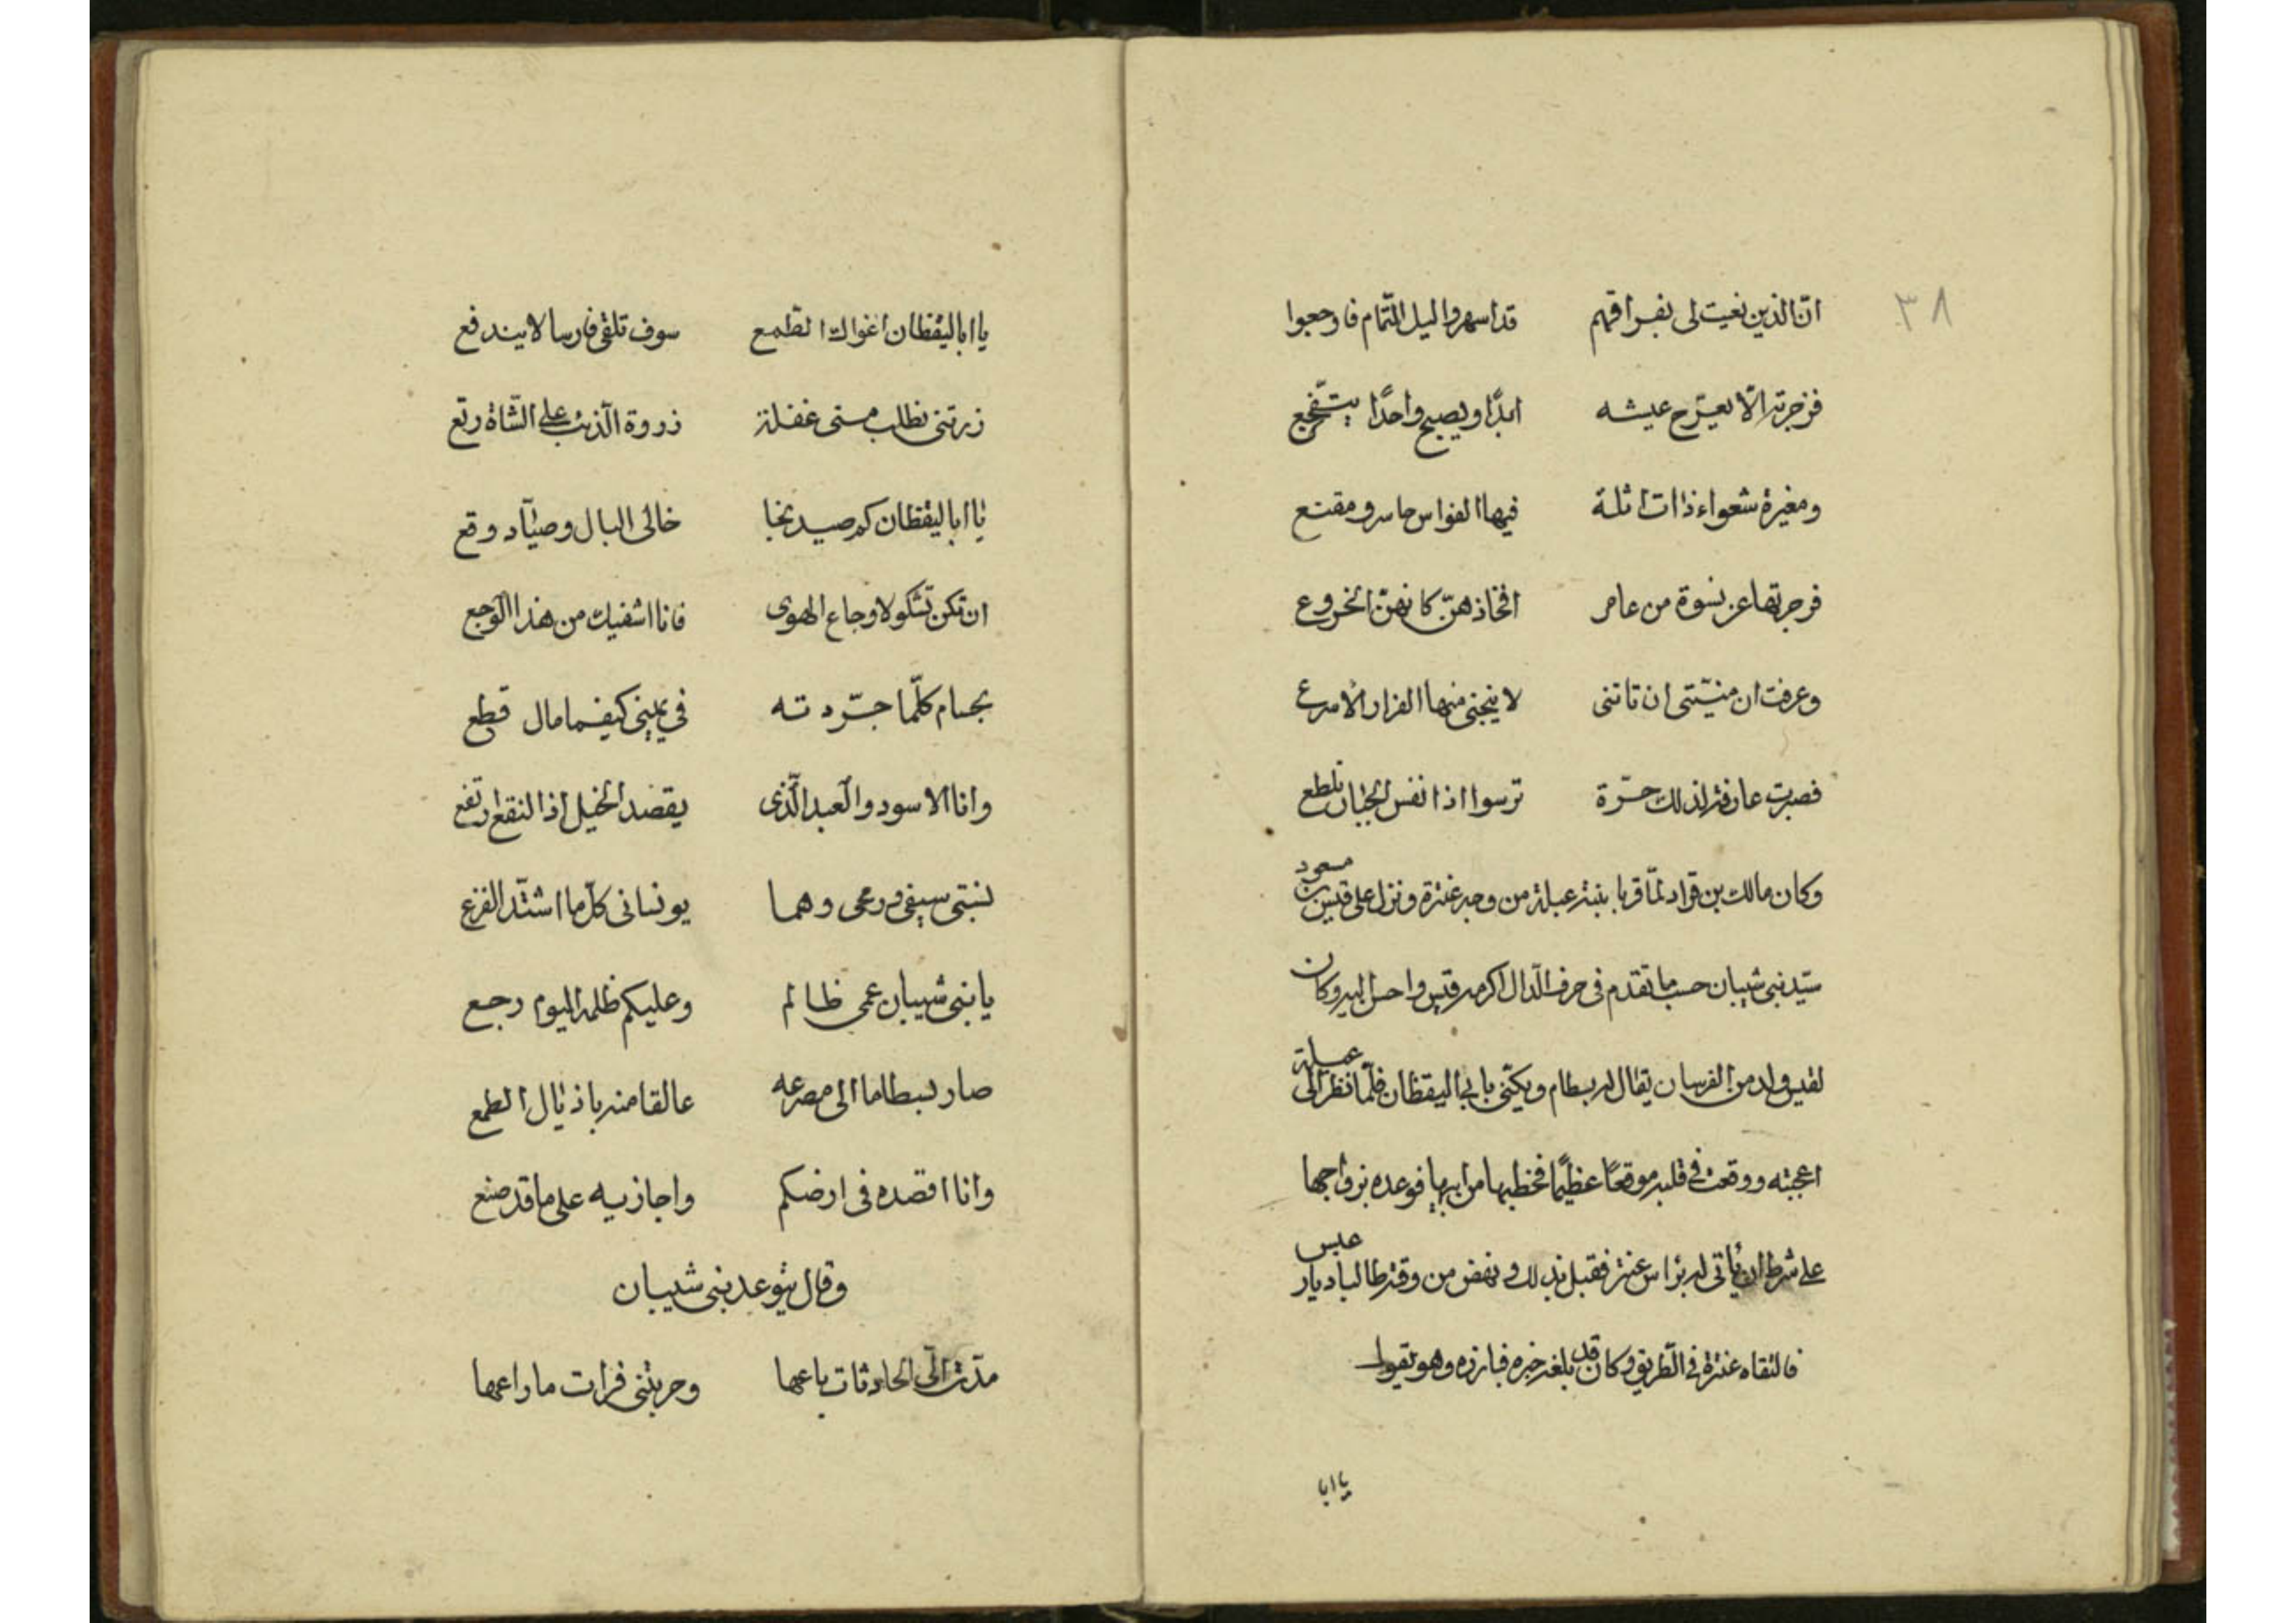 ٣٨
انّ الذين نعيت لى بفراقهم قد اسهروا ليل التّمام فاوجعوا
فزجرته الّا يعرّج عيشه ابدًا ويصبح واحدًا يتفجّع
ومغيرة شعواء ذات اثلة فيها الفوارس حاسر ومقنع
فزجرتها عن نسوة من عامر افخاذهنّ كانهنّ الخروع
وعرفت ان منيّتى ان تاتنى لا ينجنى منها الفرار الاسرع
فصبرت عارفة لذلك حرّة ترسوا اذا نفس الجبان تطلع
وكان مالك بن قراد لمّا فرّ بابنته عبلة من وجه عنترة ونزل على قيس بن مسعود
سيّد بنى شيبان حسب ما تقدم فى حرف الدّال اكرمه قيس واحسن اليه وكان
لقيس ولد من الفرسان يقال له بسطام ويكنّى بابى اليقظان فلمّا نظر الى عبلة
اعجبته ووقعت فى قلبه موقعًا عظيمًا فخطبها من ابيها فوعده بزواجها
على شرط ان يأتى له برأس عنترة فقبل بذلك ونهض من وقته طالبا ديار عبس
فالتقاه عنترة فى الطّريق وكان قد بلغه خبره فبارزه وهو يقول
يا ابا
يا ابا اليقظان اغواك الطمع سوف تلقى فارسا لا يندفع
زرتنى تطلب منى غفلة زروة الذئب على الشّاة رتع
يا ابا اليقظان كم صيد نجا خالى البال وصيّاد وقع
ان تكن تشكو لاوجاع الهوى فانا اشفيك من هذا الوجع
بحسام كلّما جرّدته فى يمينى كيفما مال قطع
وانا الاسود والعبد الّذى يقصد الخيل اذا النقع ارتفع
نسبتى سيفى ورمحى وهما يونسانى كلّما اشتدّ الفزع
يا بنى شيبان عمى ظالم وعليكم ظلمه اليوم رجع
صار بسطاما الى مصرعه عالقا منه باذيال الطمع
وانا اقصده فى ارضكم واجازيه على ما قد صنع
وقال يتوعد بنى شيبان
مدّت الىّ الحادثات باعها وحربتنى فرات ما راعها